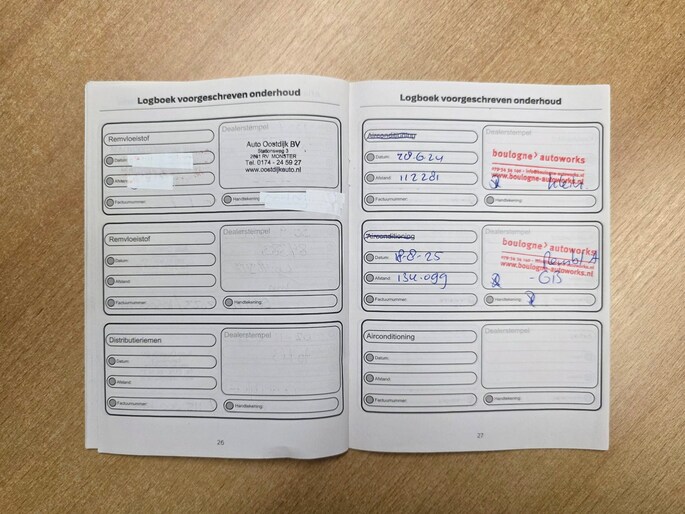 Logboek voorgeschreven onderhoud
Remvloeistof
Dealerstempel
Auto Oostdijk BV
Stationsweg 3
2691 RV MONSTER
Tel. 0174 - 24 59 27
www.oostdijkauto.nl
Datum:
Afstand:
Factuurnummer:
Handtekening:
Remvloeistof
Dealerstempel
Datum:
Afstand:
Factuurnummer:
Handtekening:
Distributieriemen
Dealerstempel
Datum:
Afstand:
Factuurnummer:
Handtekening:
26
Logboek voorgeschreven onderhoud
Airconditioning
Dealerstempel
boulogne> autoworks
www.boulogne-autoworks.nl
Datum: 28-6-24
Afstand: 112281
Klein
Factuurnummer:
Handtekening:
Airconditioning
Dealerstempel
boulogne> autoworks
www.boulogne-autoworks.nl
Datum: 18-8-25
Afstand: 134.099
Factuurnummer:
Handtekening:
Airconditioning
Dealerstempel
Datum:
Afstand:
Factuurnummer:
Handtekening:
27